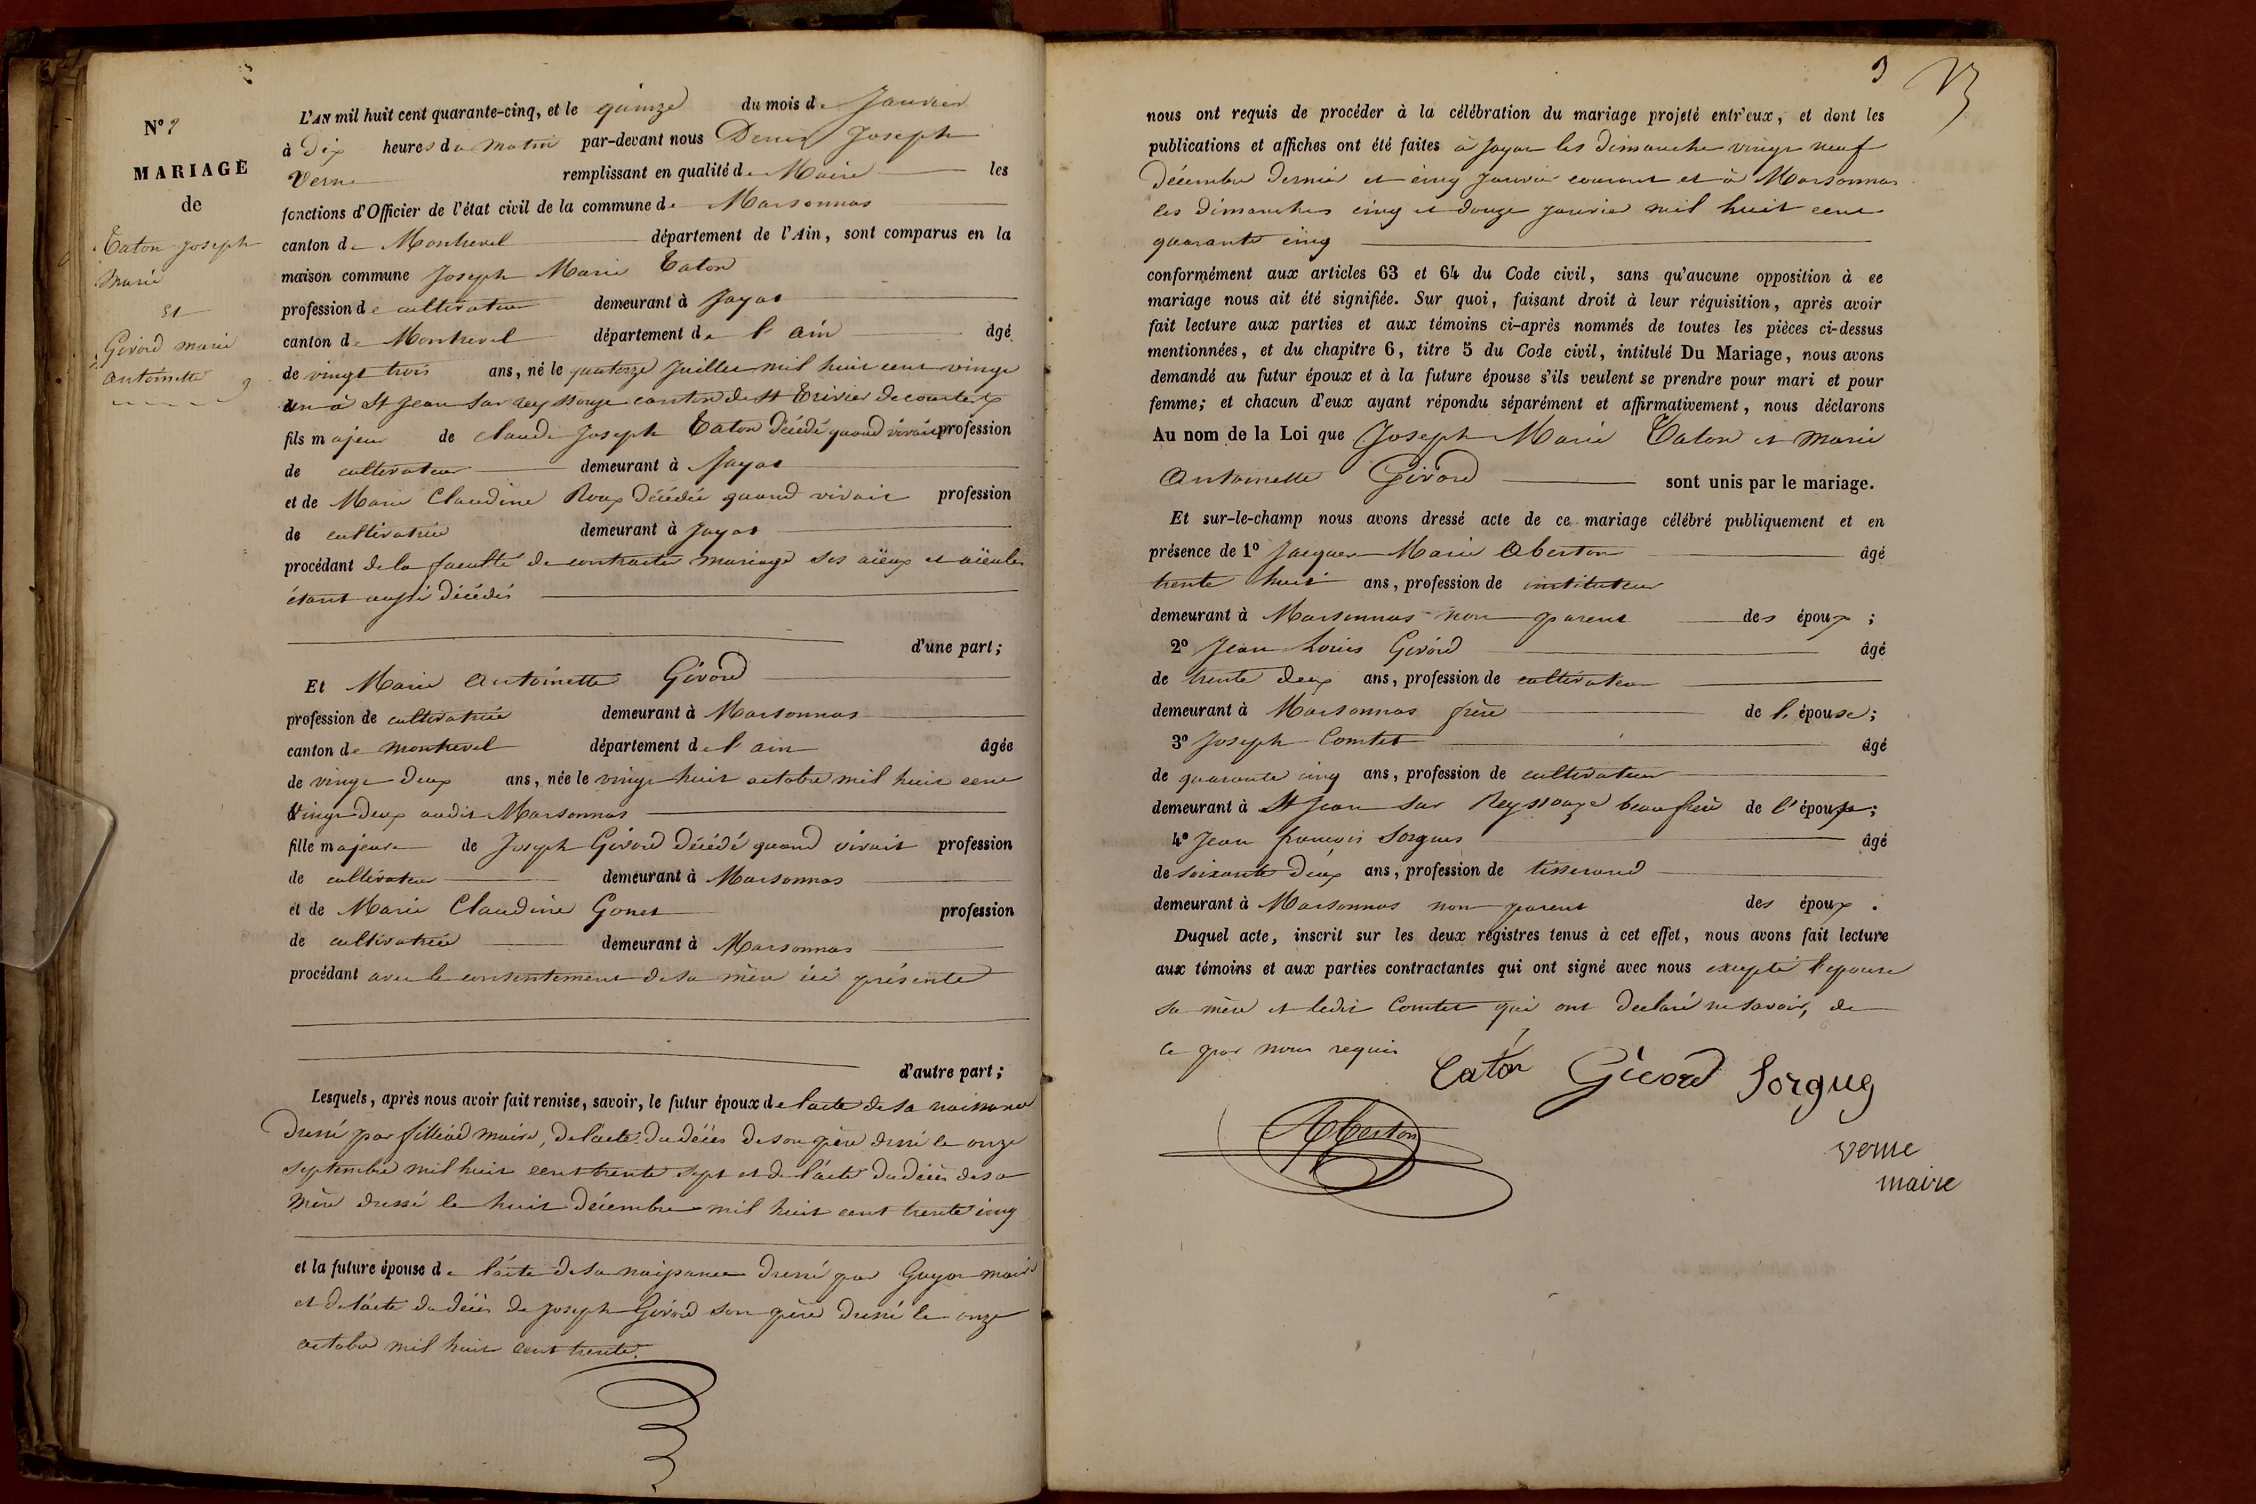 N° 2
MARIAGE
de
Caton Joseph
Marie
et
Girord marie
antoinette
L'AN mil huit cent quarante-cinq, et le quinze du mois de Janvier
à Dix heures du matin par-devant nous Denis Joseph
Verne remplissant en qualité de Maire les
fonctions d'Officier de l'état civil de la commune de Marsonnas
canton de Montrevel département de l'Ain, sont comparus en la
maison commune Joseph Marie Caton
profession de cultivateur demeurant à Jayat
canton de Montrevel département de l'ain âgé
de vingt trois ans, né le quatorze juillet mil huit cent vingt
un à St Jean sur reyssouze canton de St Trivier de courtes
fils majeur de claude Joseph Caton décédé quand vivait profession
de cultivateur demeurant à Jayat
et de Marie Claudine Roux décédée quand vivait profession
de cultivatrice demeurant à Jayat
procédant de la faculté de contracter mariage ses aïeux et aïeules
étant aussi décédés
d'une part;
Et Marie antoinette Girord
profession de cultivatrice demeurant à Marsonnas
canton de montrevel département de l'ain âgée
de vingt deux ans, née le vingt huit octobre mil huit cent
vingt deux audit Marsonnas
fille majeure de Joseph Girord décédé quand vivait profession
de cultivateur demeurant à Marsonnas
et de Marie Claudine Gonet profession
de cultivatrice demeurant à Marsonnas
procédant avec le consentement de sa mère ici présente
d'autre part;
Lesquels, après nous avoir fait remise, savoir, le futur époux de l'acte de sa naissance
dressé par filliod maire, de l'acte du décès de son père dressé le onze
septembre mil huit cent trente sept et de l'acte du décès de sa
mère dressé le huit décembre mil huit cent trente cinq
et la future épouse de l'acte de sa naissance dressé par Guyon maire
et de l'acte du décès de Joseph Girord son père dressé le onze
octobre mil huit cent trente.
3
nous ont requis de procéder à la célébration du mariage projeté entr'eux, et dont les
publications et affiches ont été faites à Jayat les dimanche vingt neuf
décembre dernier et cinq janvier courant et à Marsonnas
les dimanches cinq et douze janvier mil huit cent
quarante cinq
conformément aux articles 63 et 64 du Code civil, sans qu'aucune opposition à ce
mariage nous ait été signifiée. Sur quoi, faisant droit à leur réquisition, après avoir
fait lecture aux parties et aux témoins ci-après nommés de toutes les pièces ci-dessus
mentionnées, et du chapitre 6, titre 5 du Code civil, intitulé Du Mariage, nous avons
demandé au futur époux et à la future épouse s'ils veulent se prendre pour mari et pour
femme; et chacun d'eux ayant répondu séparément et affirmativement, nous déclarons
Au nom de la Loi que Joseph Marie Caton et Marie
Antoinette Girord sont unis par le mariage.
Et sur-le-champ nous avons dressé acte de ce mariage célébré publiquement et en
présence de 1° Jacques Marie Aberton âgé
trente huit ans, profession de instituteur
demeurant à Marsonnas non parent des époux;
2° Jean Louis Girord âgé
de trente deux ans, profession de cultivateur
demeurant à Marsonnas frère de l'épouse;
3° Joseph Comtet âgé
de quarante cinq ans, profession de cultivateur
demeurant à St Jean sur Reyssouze beau frère de l'époux;
4° Jean françois Sorgues âgé
de soixante deux ans, profession de tisserand
demeurant à Marsonnas non parent des époux.
Duquel acte, inscrit sur les deux registres tenus à cet effet, nous avons fait lecture
aux témoins et aux parties contractantes qui ont signé avec nous excepté l'epouse
sa mère et ledit Comtet qui ont declaré ne savoir, de
ce par nous requis
Caton Girord Sorgug
Aberton
verne
maire